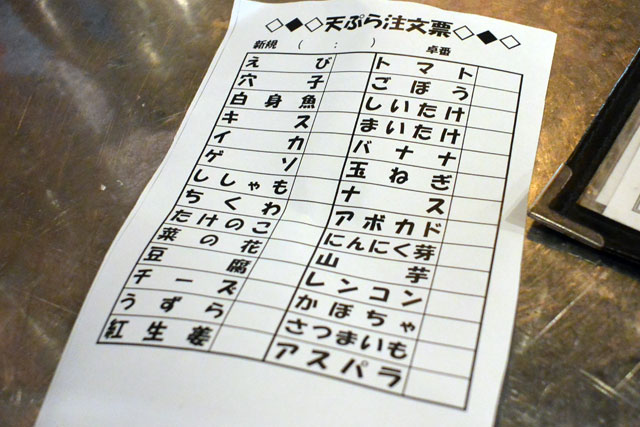 ◇◆◇天ぷら注文票◇◆◇
新規 ( : ) 卓番
えび トマト
穴子 ごぼう
白身魚 しいたけ
キス まいたけ
イカ バナナ
ゲソ 玉ねぎ
ししゃも ナス
ちくわ アボカド
たけのこ にんにく芽
菜の花 山芋
豆腐 レンコン
チーズ かぼちゃ
うずら さつまいも
紅生姜 アスパラ